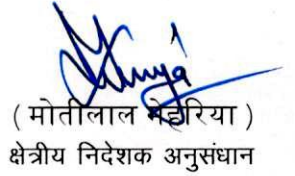 ( मोतीलाल मेहरिया )
क्षेत्रीय निदेशक अनुसंधान